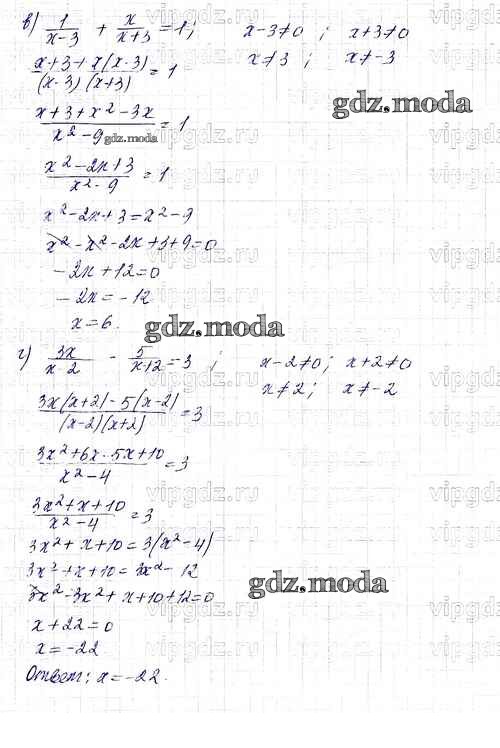 в) 1/(x-3) + x/(x+3) = 1; x-3≠0; x+3≠0
x≠3; x≠-3
(x+3+x(x-3))/((x-3)(x+3)) = 1
gdz.moda
(x+3+x²-3x)/(x²-9) = 1
gdz.moda
(x²-2x+3)/(x²-9) = 1
x²-2x+3=x²-9
x²-x²-2x+3+9=0
-2x+12=0
-2x=-12
x=6.
gdz.moda
г) 3x/(x-2) - 5/(x+2) = 3; x-2≠0; x+2≠0
x≠2; x≠-2
(3x(x+2)-5(x-2))/((x-2)(x+2)) = 3
(3x²+6x-5x+10)/(x²-4) = 3
(3x²+x+10)/(x²-4) = 3
3x²+x+10=3(x²-4)
3x²+x+10=3x²-12
gdz.moda
3x²-3x²+x+10+12=0
x+22=0
x=-22
Ответ: x=-22.
vipgdz.ru